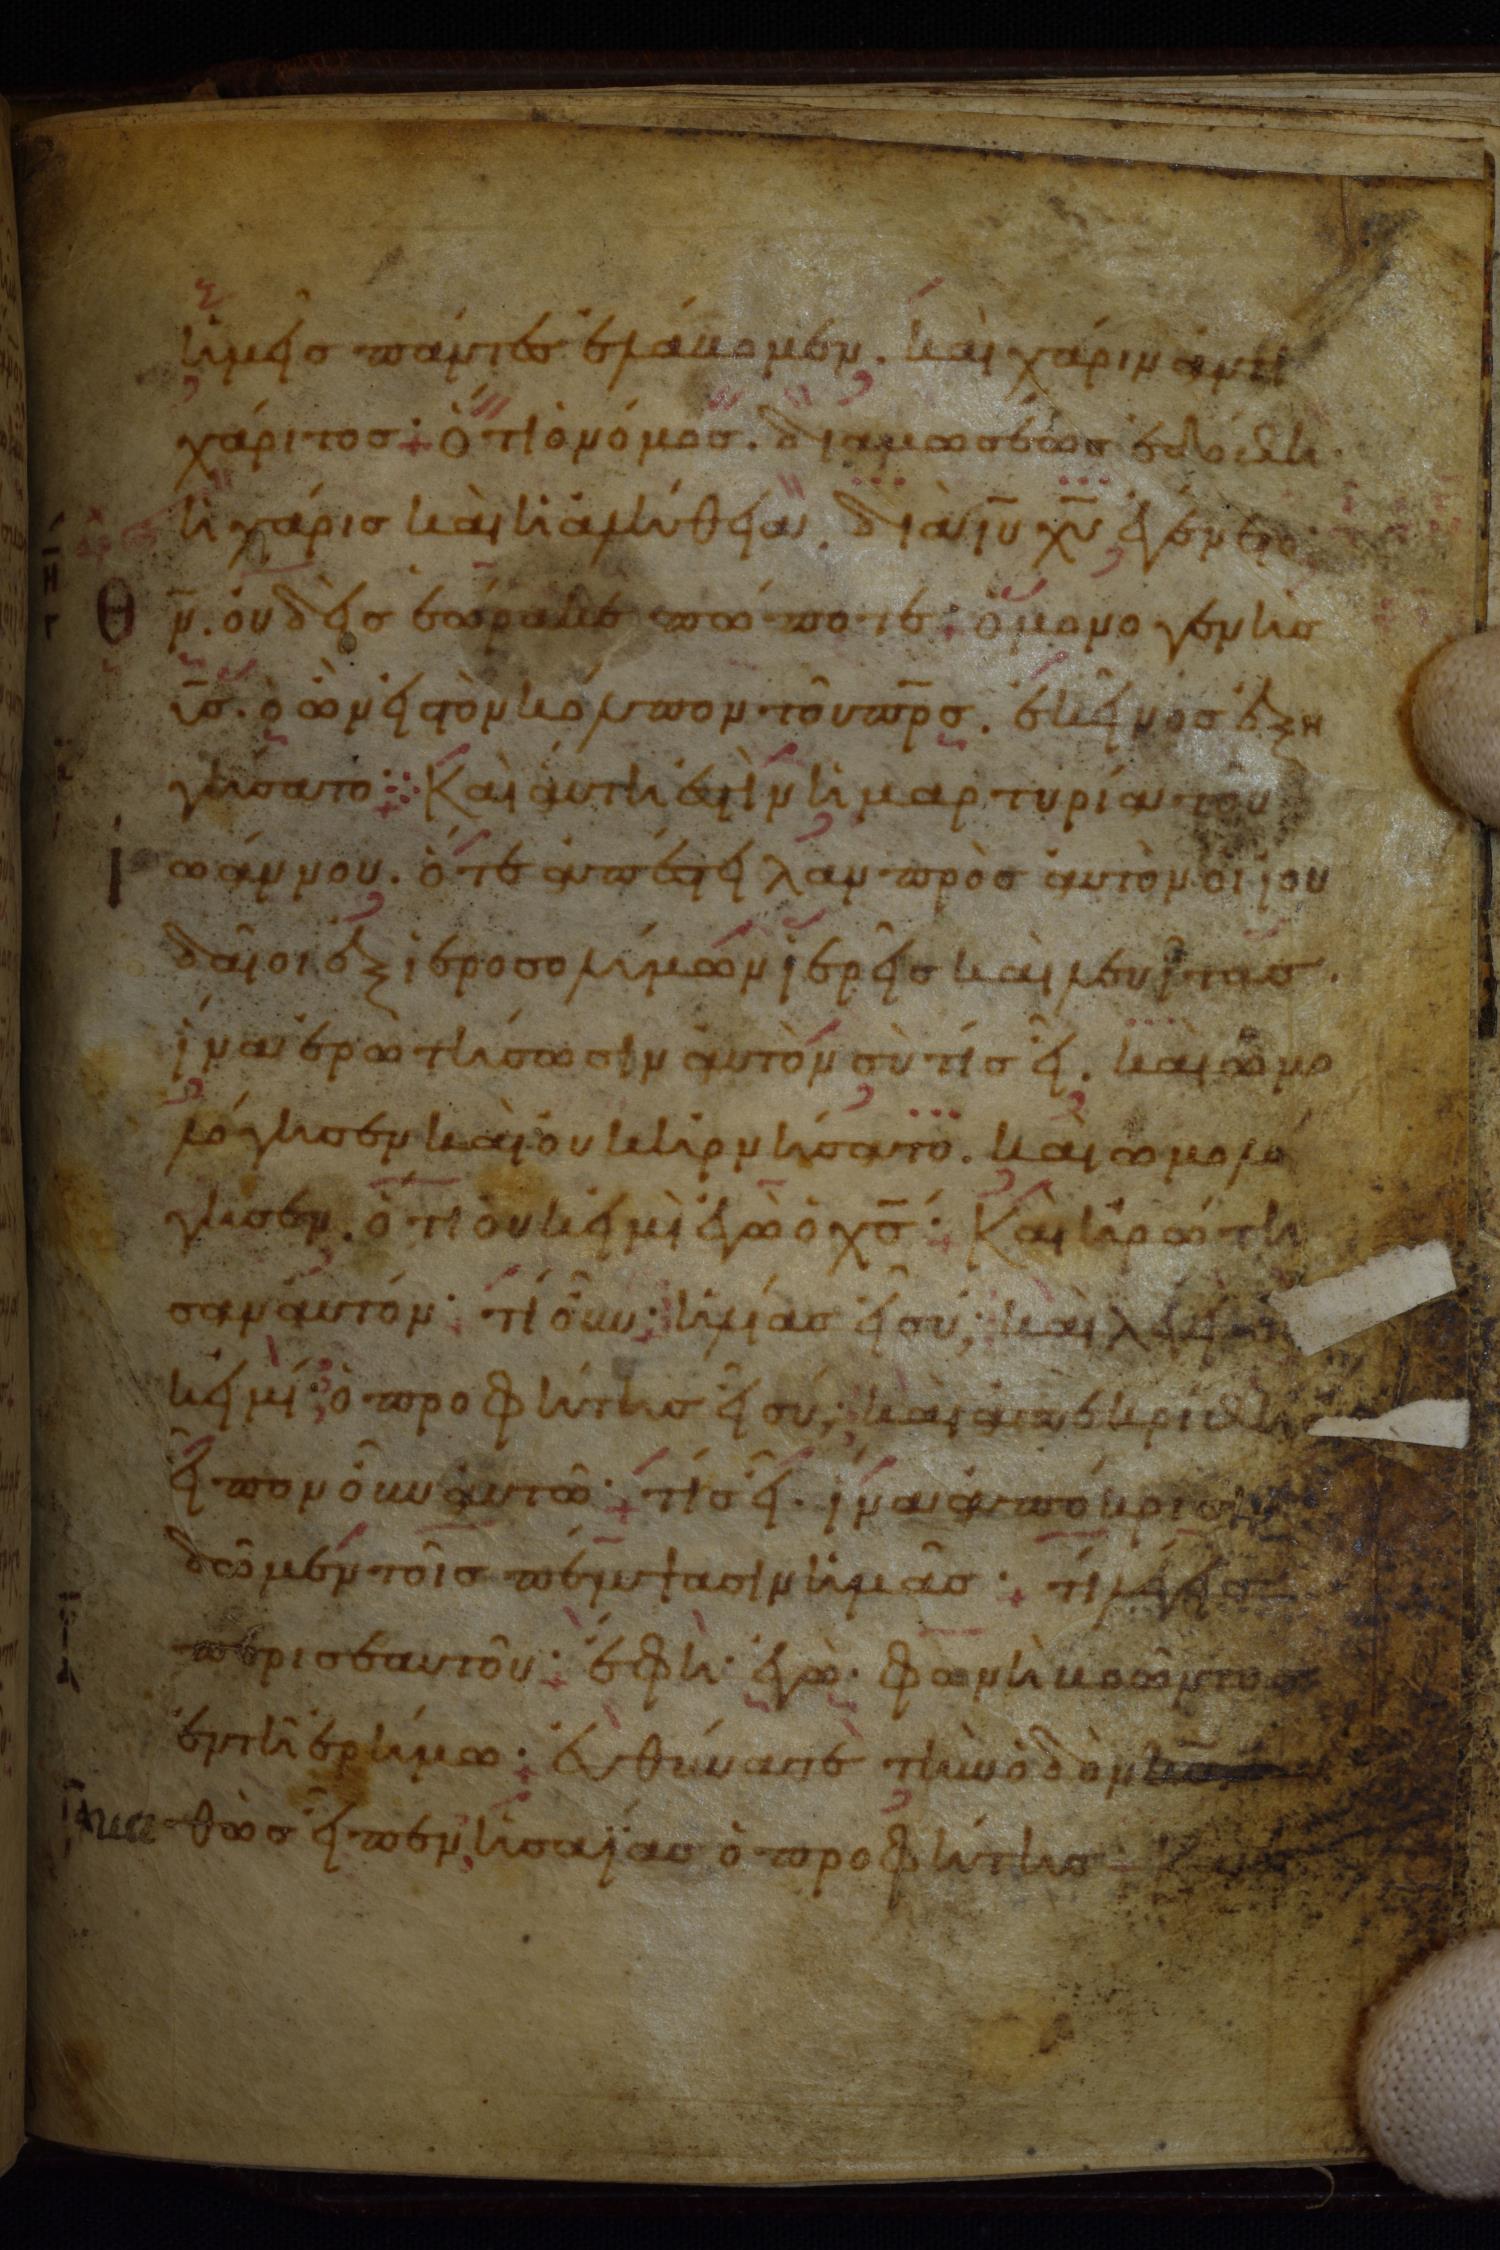 ἡμεῖς πάντες ἐλάβομεν. καὶ χάριν ἀντὶ
χάριτος· ὅτι ὁ νόμος. διὰ μωσέως ἐδόθη·
ἡ χάρις καὶ ἡ ἀλήθεια. διὰ ιυ χυ ἐγένετο·
Θν. οὐδεὶς ἑώρακε πώποτε· ὁ μονογενὴς
ις. ὁ ὢν εἰς τὸν κόλπον τοῦ πρς. ἐκεῖνος ἐξη
γήσατο· Καὶ αὕτη ἐστὶν ἡ μαρτυρία τοῦ
ἰωάννου. ὅτε ἀπέστειλαν πρὸς αὐτὸν οἱ ἰου
δαῖοι ἐξ ἱεροσολύμων ἱερεῖς καὶ λευίτας.
ἵνα ἐρωτήσωσιν αὐτόν σὺ τίς εἶ. καὶ ὡμο
λόγησεν καὶ οὐκ ἠρνήσατο. καὶ ὡμολό
γησεν. ὅτι οὐκ εἰμὶ ἐγὼ ὁ χς· Καὶ ἠρώτη
σαν αὐτόν· τί οὖν· ἠλίας εἶ σύ; καὶ λέγει
κ εἰμί· ὁ προφήτης εἶ σύ; καὶ ἀπεκρίθη
εἶπον οὖν αὐτῶ· τίς εἶ. ἵνα ἀπόκρισιν
δῶμεν τοῖς πέμψασιν ἡμᾶς· τί λέγεις
περὶ σεαυτοῦ· ἔφη· ἐγὼ· φωνὴ βοῶντος
ἐν τῆ ἐρήμω· εὐθύνατε τὴν ὁδὸν κυ
κα θὼς εἶπεν ἡσαΐας ὁ προφήτης· Καὶ